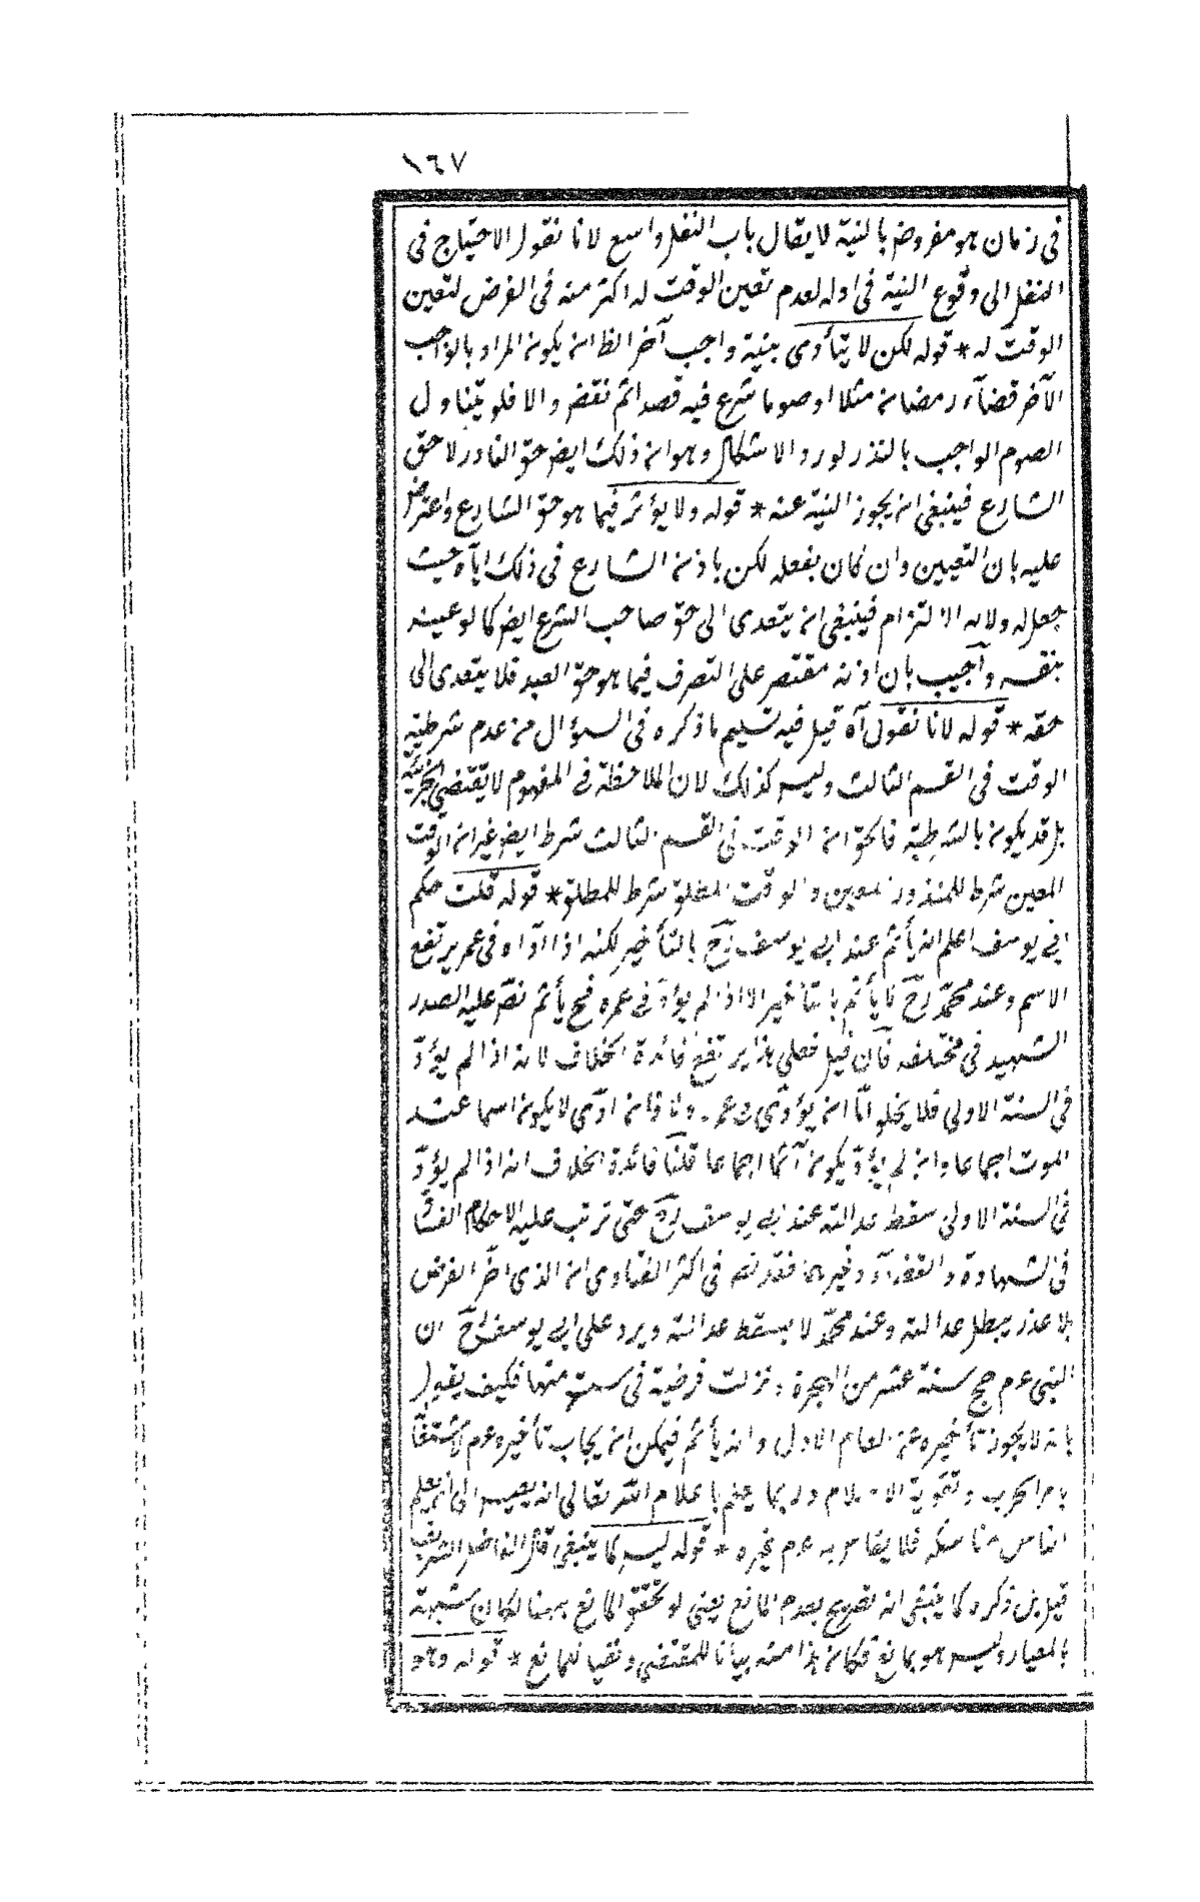 ١٦٧
فى زمان هو مفروض بالنية لا يقال باب النفل واسع لانا نقول الاحتياج فى
النفل الى وقوع النية فى اوله لعدم تعين الوقت له اكثر منه فى الفرض لتعين
الوقت له * قوله لكن لا يتأدى بنية واجب آخر الظ ان يكون المراد بالواجب
الآخر قضاء رمضان مثلا او صوما شرع فيه قصدا ثم نقض والا فلو يتناول
الصوم الواجب بالنذر لورد الاشكال وهو ان ذلك ايض حق القادر لا حق
الشارع فينبغى ان يجوز النية عنه * قوله ولا يؤثر فيما هو حق الشارع واعترض
عليه بان التعيين وان كان بفعله لكن باذن الشارع فى ذلك اياه حيث
جعل له ولاية الالتزام فينبغى ان يتعدى الى حق صاحب الشرع ايض كما لو عينه
بنفسه وأجيب بان اذنه مقتصر على التصرف فيما هو حق العبد فلا يتعدى الى
حقه * قوله لانا نقول آه قيل فيه تسليم ما ذكره فى السؤال من عدم شرطية
الوقت فى القسم الثالث وليس كذلك لان الملاحظة فى المفهوم لا يقتضى الجزئية
بل قد يكون بالشرطية فالحق ان الوقت فى القسم الثالث شرط ايض غير ان الوقت
المعين شرط للمنذور المعين والوقت المطلق شرط للمطلق * قوله قلت حكم
ابى يوسف اعلم انه يأثم عند ابى يوسف رح بالتأخير لكنه اذا اداه فى عمره يرتفع
الاسم وعند محمد رح لا يأثم بالتأخير الا اذا لم يؤد فى عمره فح يأثم نص عليه الصدر
الشهيد فى مختلفه فان قيل فعلى هذا يرتفع فائدة الخلاف لانه اذا لم يؤد
فى السنة الاولى فلا يخلو اما ان يؤدى فى عمره او لا فان ادى لا يكون اسما عند
الموت اجماعا وان لم يؤد يكون آثما اجماعا قلنا فائدة الخلاف انه اذا لم يؤد
فى السنة الاولى سقط عدالته عند ابى يوسف رح حتى ترتب عليه الاحكام
فى الشهادة والقضاء وغيرهما فقد نص فى اكثر الفتاوى ان الذى اخر الفرض
بلا عذر يبطل عدالته وعند محمد لا يسقط عدالته ويرد على ابى يوسف رح ان
النبى عم حج سنة عشر من الهجرة ونزلت فرضية فى ست منها فكيف يقول
بانه لا يجوز تأخيره عن العام الاول وانه يأثم فيمكن ان يجاب تأخيره عم
بامر الحرب وتقوية الاسلام وربما علم باعلام الله تعالى انه يعيش الى ان يعلم
الناس مناسكه فلا يقاس به عم غيره * قوله ليس كما ينبغى قال الفاضل الشريف
قيل بل ذكره كما ينبغى انه تصريح بعدم المانع يعنى لو تحقق المانع ههنا لكان مشبهة
بالمعيار وليس هو بمانع فكان هذا منه بيانا للمقتضى ونفيا للمانع * قوله وهو